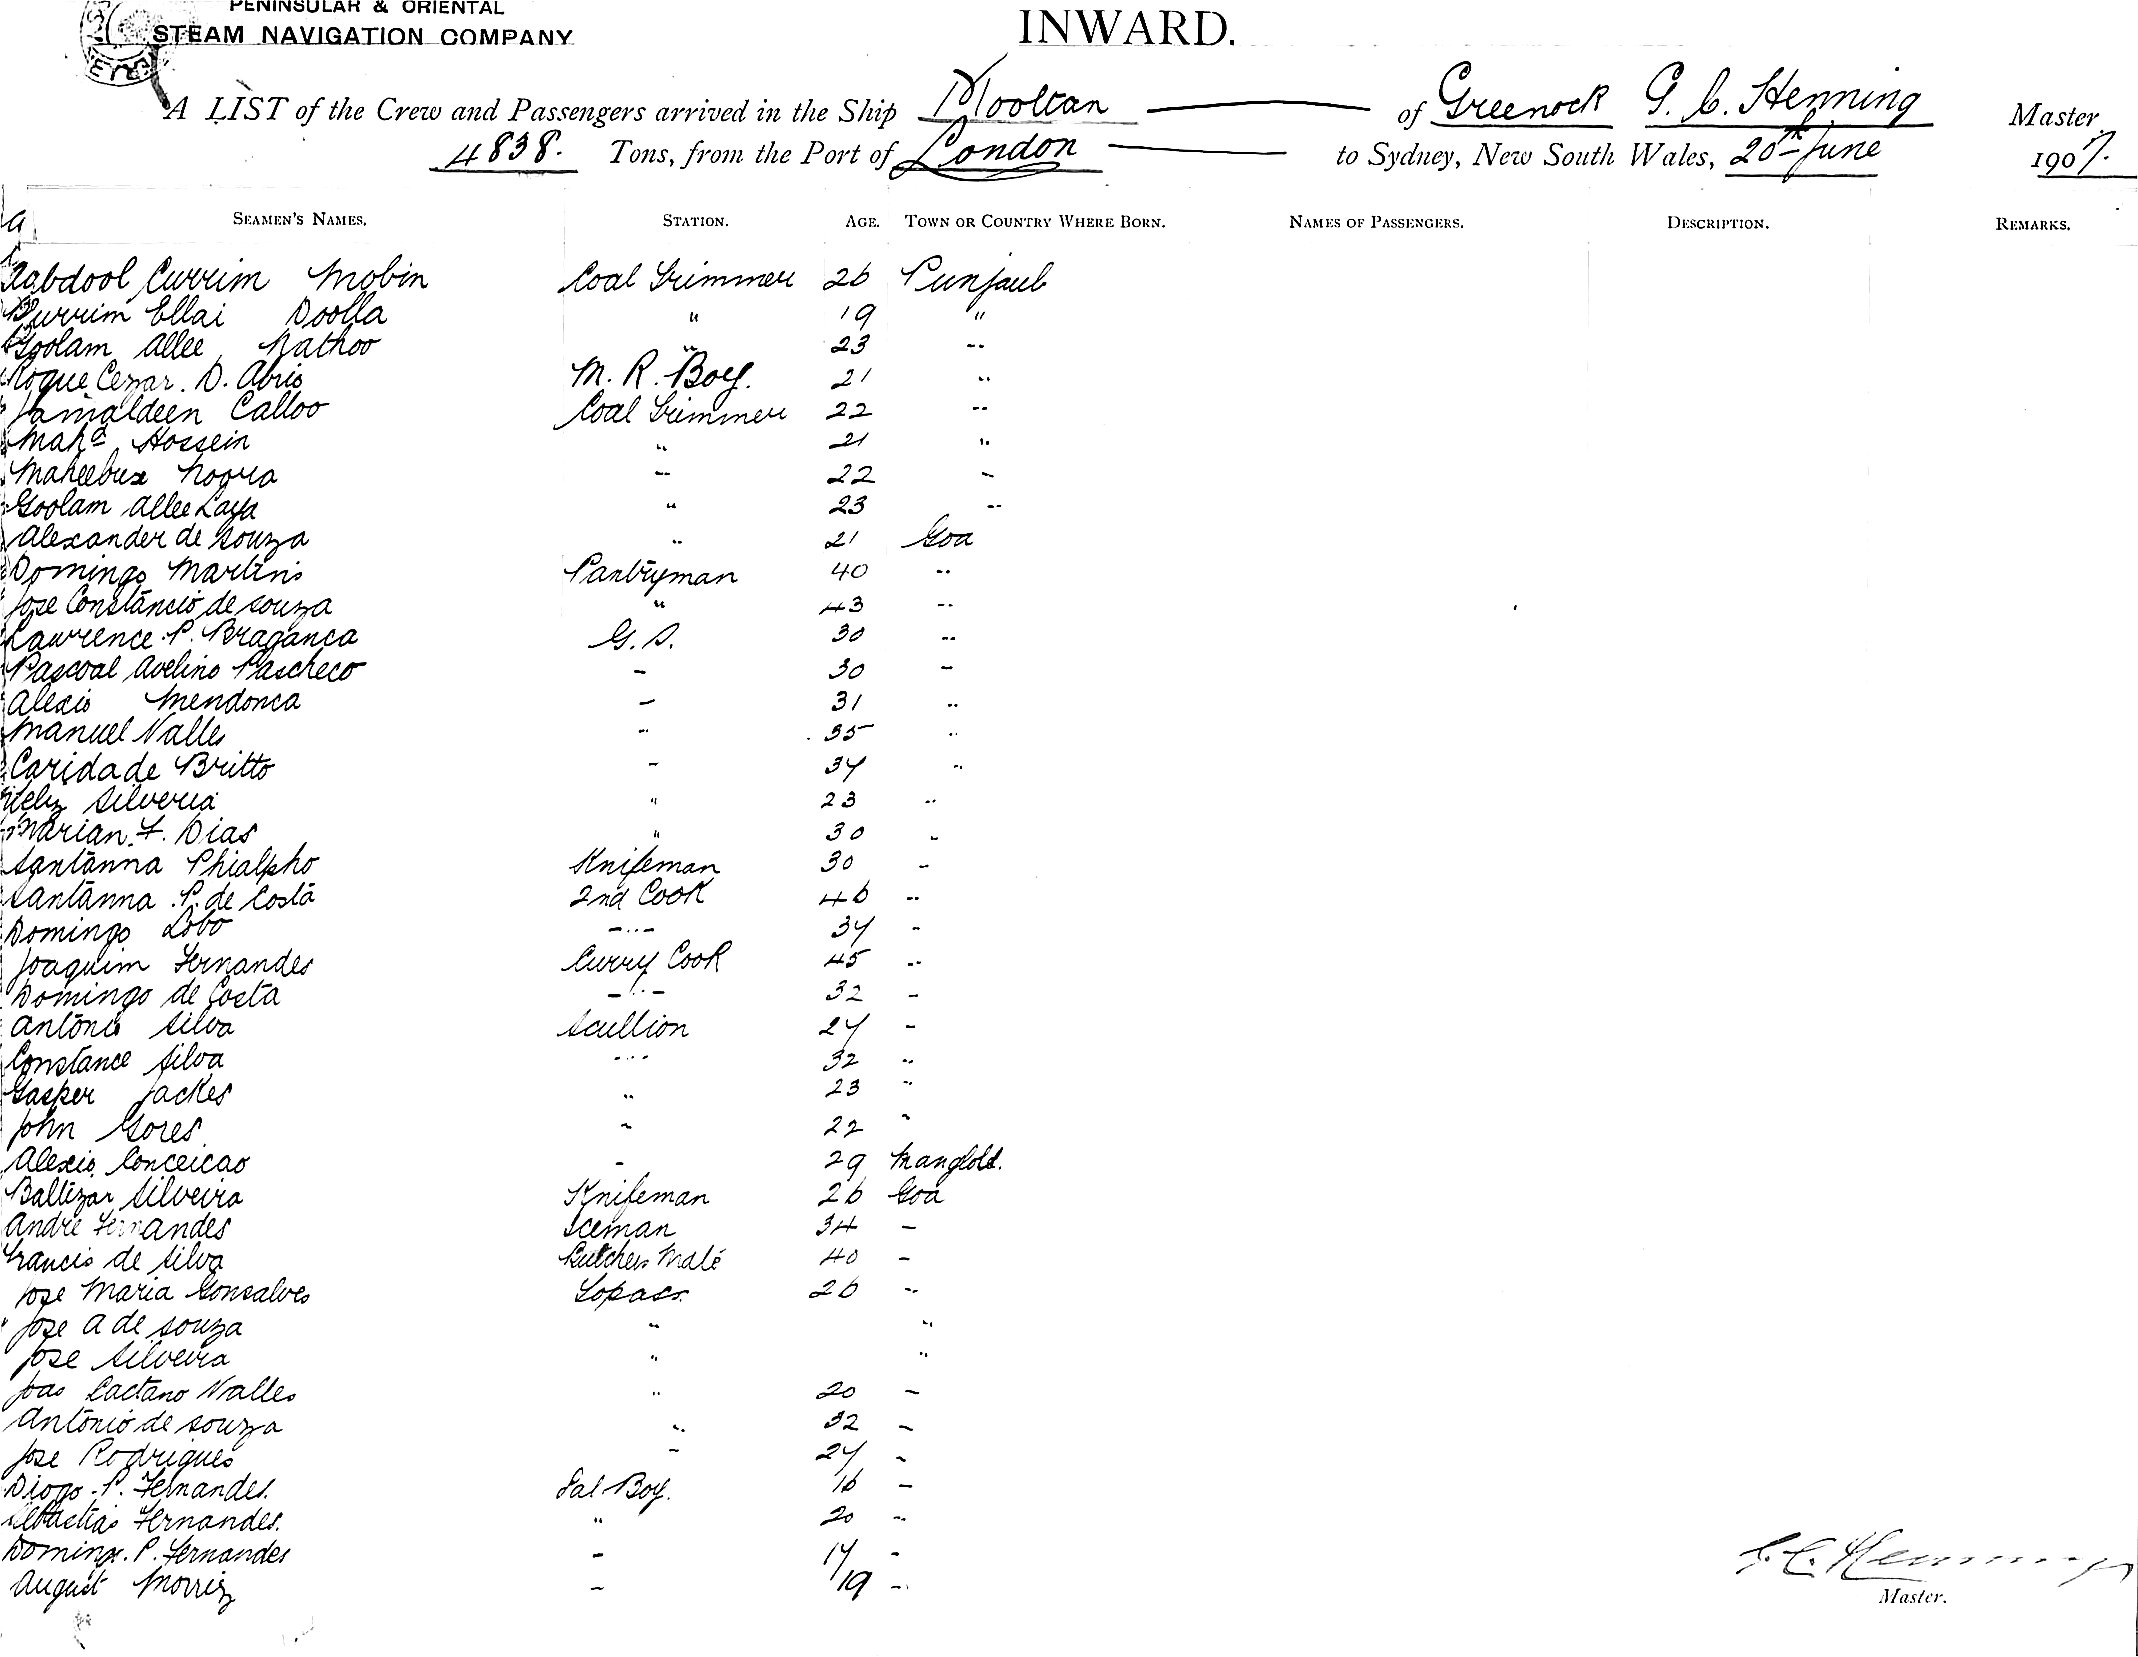 PENINSULAR & ORIENTAL
STEAM NAVIGATION COMPANY
INWARD.
A LIST of the Crew and Passengers arrived in the Ship Mooltan of Greenock G. C. Henning Master
4838. Tons, from the Port of London to Sydney, New South Wales, 20th June 1907.
SEAMEN'S NAMES. STATION. AGE. TOWN OR COUNTRY WHERE BORN. NAMES OF PASSENGERS. DESCRIPTION. REMARKS.
Aabdool Currim Mobin Coal Trimmer 26 Punjaub
Currim Ellai Doolla " 19 "
Goolam Allee Nathoo " 23 "
Roque Cezar. D. Abrio M. R. Boy. 21 "
Jamaldeen Calloo Coal Trimmer 22 "
Mahd Hossein " 21 "
Maheebux Noora " 22 "
Goolam Allee Laya " 23 "
Alexander de Souza " 21 Goa
Domingo Martins Pantryman 40 "
Jose Constancio de Souza " 43 "
Lawrence P. Braganca G. S. 30 "
Pascoal Avelino Pascheco " 30 "
Alexio Mendonca " 31 "
Manuel Valles " 35 "
Caridade Britto " 34 "
Feliz Silveria " 23 "
Marian F. Dias " 30 "
Santanna Phialpho Knifeman 30 "
Santanna P. de Costa 2nd Cook 46 "
Domingo Lobo " 34 "
Joaquim Fernandes Curry Cook 45 "
Domingo de Costa " 32 "
Antonio Silva Scullion 24 "
Constance Silva " 32 "
Gasper Jackes " 23 "
John Gores " 22 "
Alexio Conceicao " 29
Baltizar Silveira Knifeman 26 Goa
Andre Fernandes Iceman 34 "
Francis de Silva Butchers Mate 40 "
Jose Maria Gonsalves Topass. 26 "
Jose A de Souza " "
Jose Silveira " "
Joao Caetano Valles " 20 "
Antonio de Souza " 32 "
Jose Rodrigues " 24 "
Diogo P. Fernandes. Sal Boy. 16 "
Sebastiao Fernandes. " 20 "
Doming. P. Fernandes " 17 "
August Morriz " 19 "
G. C. Henning
Master.